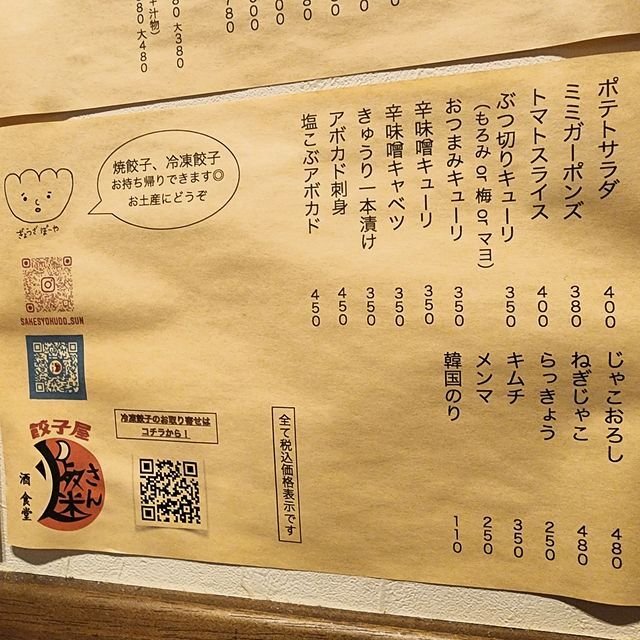 大380
汁物)
大480
ポテトサラダ 400
ミミガーポンズ 380
トマトスライス 400
ぶつ切りキューリ 350
(もろみ or 梅 or マヨ)
おつまみキューリ 350
辛味噌キューリ 350
辛味噌キャベツ 350
きゅうり一本漬け 350
アボカド刺身 450
塩こぶアボカド 450
じゃこおろし 480
ねぎじゃこ 480
らっきょう 250
キムチ 350
メンマ 250
韓国のり 110
全て税込価格表示です
焼餃子、冷凍餃子
お持ち帰りできます◎
お土産にどうぞ
ぎょうざぼーや
SAKESYOKUDO_SUN
冷凍餃子のお取り寄せは
コチラから！
餃子屋
燦さん
酒食堂